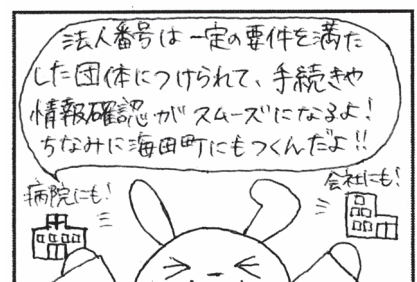 法人番号は一定の要件を満た
した団体につけられて、手続きや
情報確認がスムーズになるよ!
ちなみに海田町にもつくんだよ!!
病院にも!
会社にも!